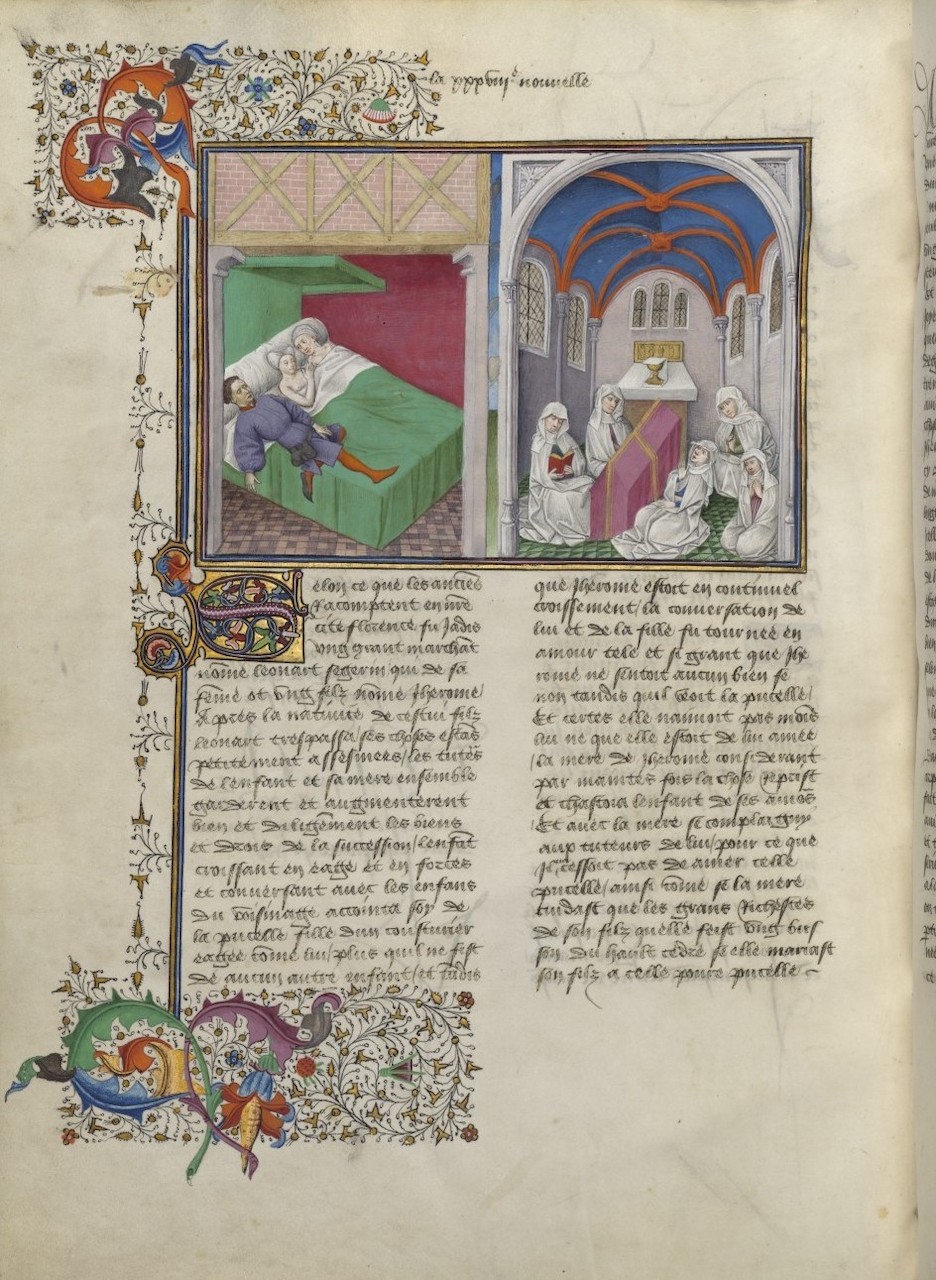 la xxxviij.e nouuelle
Selon ce que les anciēs
racomptent en nr̄e
cite florence fu Jadis
vng grant marchāt
nōme leonart segerin qui de sa
fēme ot vng filz nōme Jherome
Apres la natiuite de cestui filz
leonart trespassa ses choses estās
petitement assesinees les tutēs
de lenfant et sa mere ensemble
garderent et augmenterent
bien et diligēment les biens
et drois de la succession lenfāt
croissant en eage et en forces
et conuersant auec les enfans
du voisinage accointa soy de
la pucelle fille dun cousturier
eagee cōme lui plus quil ne fist
de aucun autre enfant et tādis
que Jherome estoit en continuel
croissement la conuersation de
lui et de la fille fu tournee en
amour tele et si grant que Jhe
rome ne sentoit aucun bien se
non tandis quil veoit la pucelle
Et certes elle namoit pas mōis
lui ne que elle estoit de lui amee
la mere de Jherome considerant
par maintes fois la chose reprist
et chastoia lenfant de ses amōs
Et auec la mere se complaigny
aux tuteurs de lui pour ce que
Jl cessoit pas de amer celle
pucelle ainsi cōme se la mere
cuidast que les grans richesses
de son filz quelle feist vng buis
son du hault cedre se elle mariast
son filz a celle poure pucelle